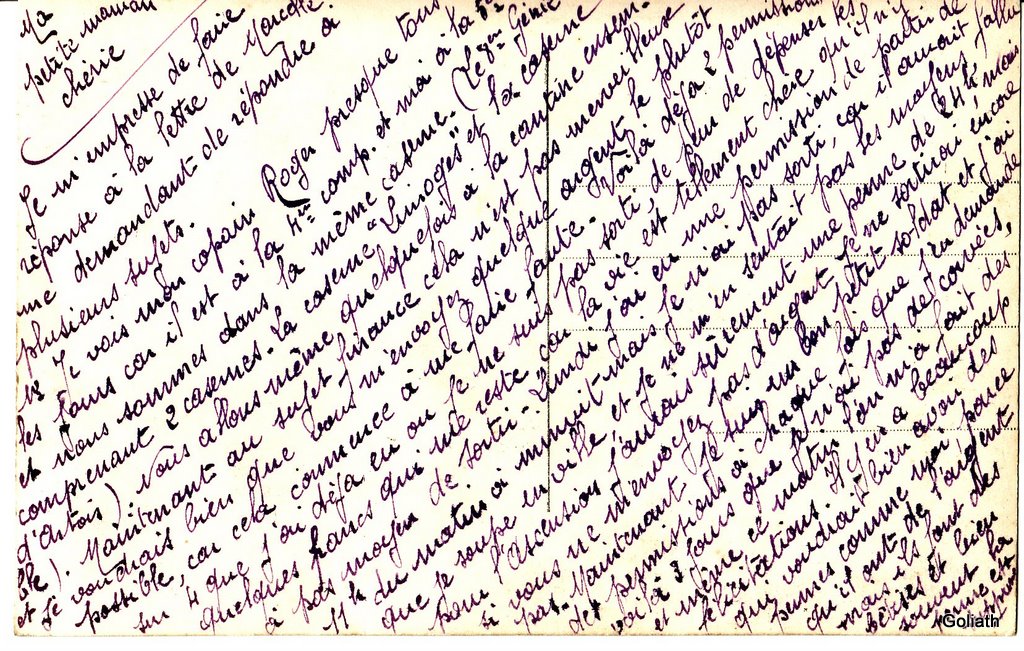 Ma
petite maman
chérie
Je m'empresse de faire
réponse à la lettre de Marcelle.
me demandant de répondre à
plusieurs sujets.
1° Je vois mon copain Roger presque tous
les jours car il est à la 4me comp. et moi à la 5e
et nous sommes dans la même caserne. Génie
comprenant 2 casernes - La caserne "Limoges" et la caserne
d'artois) nous allons même quelquefois à la cantine ensem-
ble). Maintenant au sujet finance cela n'est pas merveilleux
et je voudrais bien que vous m'envoyez quelque argent le plutôt
possible, car cela commence à me faire faute - Voilà déjà 2 permissions
sur 4 que j'ai déja eu où je ne suis pas sorti, de peur de dépenser les
quelques francs qui me reste car la vie est tellement chère qu'il n'y
à pas moyen de sortir - Lundi j'ai eu une permission de partir de
11h du matin à minuit mais je n'ai pas sorti, car il aurait fallu
que je soupe en ville et je ne m'en sentait pas les moyens -
pour l'Ascension j'aurais sûrement une perme de 24h, mais
si vous ne m'envoyez pas d'argent je ne sortirai encore
pas - Maintenant je suis un bon petit soldat et j'ai
des permissions à chaque fois que j'en demande
voilà 3 jours que je n'ai pas de corvées,
et même ce matin l'on m'a fait des
félicitations. Il y en a beaucoup
qui voudrait bien avoir des
permes comme moi parce
qu'il ont de l'argent
mais ils font des
bêtises et bien
souvent la
perme est
Goliath